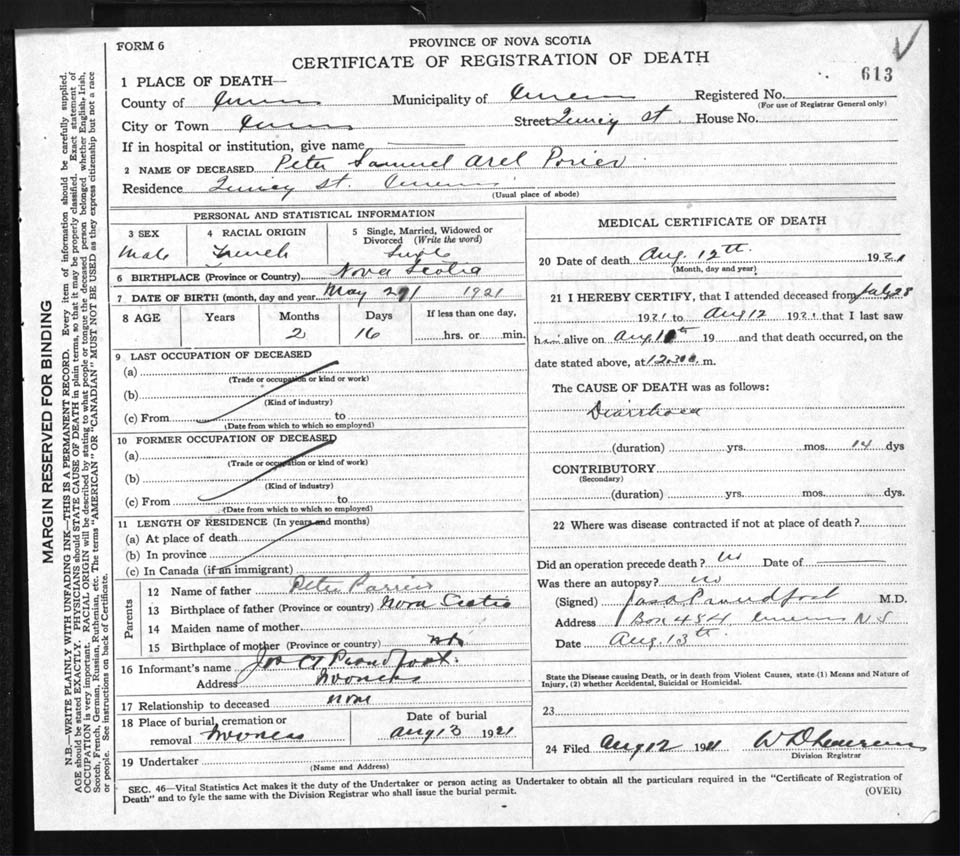 FORM 6
PROVINCE OF NOVA SCOTIA
CERTIFICATE OF REGISTRATION OF DEATH
613
1 PLACE OF DEATH—
County of Municipality of Registered No.
(For use of Registrar General only)
City or Town Street St. House No.
If in hospital or institution, give name
2 NAME OF DECEASED Peter Samuel Arel Porier
Residence St.
(Usual place of abode)
PERSONAL AND STATISTICAL INFORMATION
3 SEX
Male
4 RACIAL ORIGIN
French
5 Single, Married, Widowed or Divorced (Write the word)
Single
6 BIRTHPLACE (Province or Country) Nova Scotia
7 DATE OF BIRTH (month, day and year) May 1921
8 AGE Years Months Days If less than one day,
2 16 hrs. or min.
9 LAST OCCUPATION OF DECEASED
(a)
(Trade or occupation or kind or work)
(b)
(Kind of industry)
(c) From to
(Date from which to which so employed)
10 FORMER OCCUPATION OF DECEASED
(a)
(Trade or occupation or kind of work)
(b)
(Kind of industry)
(c) From to
(Date from which to which so employed)
11 LENGTH OF RESIDENCE (In years and months)
(a) At place of death
(b) In province
(c) In Canada (if an immigrant)
Parents
12 Name of father Peter
13 Birthplace of father (Province or country) Nova Scotia
14 Maiden name of mother
15 Birthplace of mother (Province or country)
16 Informant's name Proudfoot
Address
17 Relationship to deceased none
18 Place of burial, cremation or removal
Date of burial
Aug 13 1921
19 Undertaker
(Name and Address)
MEDICAL CERTIFICATE OF DEATH
20 Date of death Aug. 12th. 1921
(Month, day and year)
21 I HEREBY CERTIFY, that I attended deceased from July 28
1921 to Aug 12 1921 that I last saw
him alive on Aug 19 and that death occurred, on the
date stated above, at m.
The CAUSE OF DEATH was as follows:
Diarrhoea
(duration) yrs. mos. 14 dys
CONTRIBUTORY
(Secondary)
(duration) yrs. mos. dys.
22 Where was disease contracted if not at place of death?
Did an operation precede death? no Date of
Was there an autopsy? no
(Signed) Proudfoot M.D.
Address Box 484 N S
Date Aug. 13th
State the Disease causing Death, or in death from Violent Causes, state (1) Means and Nature of
Injury, (2) whether Accidental, Suicidal or Homicidal.
23
24 Filed Aug 12 1921
Division Registrar
SEC. 46—Vital Statistics Act makes it the duty of the Undertaker or person acting as Undertaker to obtain all the particulars required in the "Certificate of Registration of
Death" and to fyle the same with the Division Registrar who shall issue the burial permit. (OVER)
MARGIN RESERVED FOR BINDING
N.B.—WRITE PLAINLY WITH UNFADING INK—THIS IS A PERMANENT RECORD. Every item of information should be carefully supplied.
AGE should be stated EXACTLY. PHYSICIANS should STATE CAUSE OF DEATH in plain terms, so that it may be properly classified. Exact statement of
OCCUPATION is very important. RACIAL ORIGIN will be described by stating to what people or tongue the deceased person belonged whether English, Irish,
Scotch, French, German, Russian, Ruthenian, etc. The terms "AMERICAN" OR "CANADIAN" MUST NOT BE USED as they express citizenship but not a race
or people. See instructions on back of Certificate.